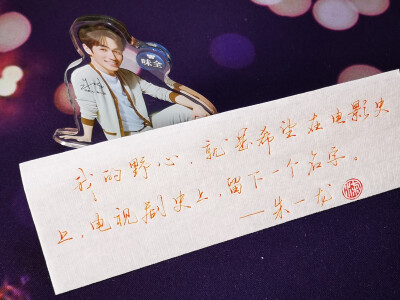 味全
我的野心，就是希望在电影史
上，电视剧史上，留下一个名字。
——朱一龙